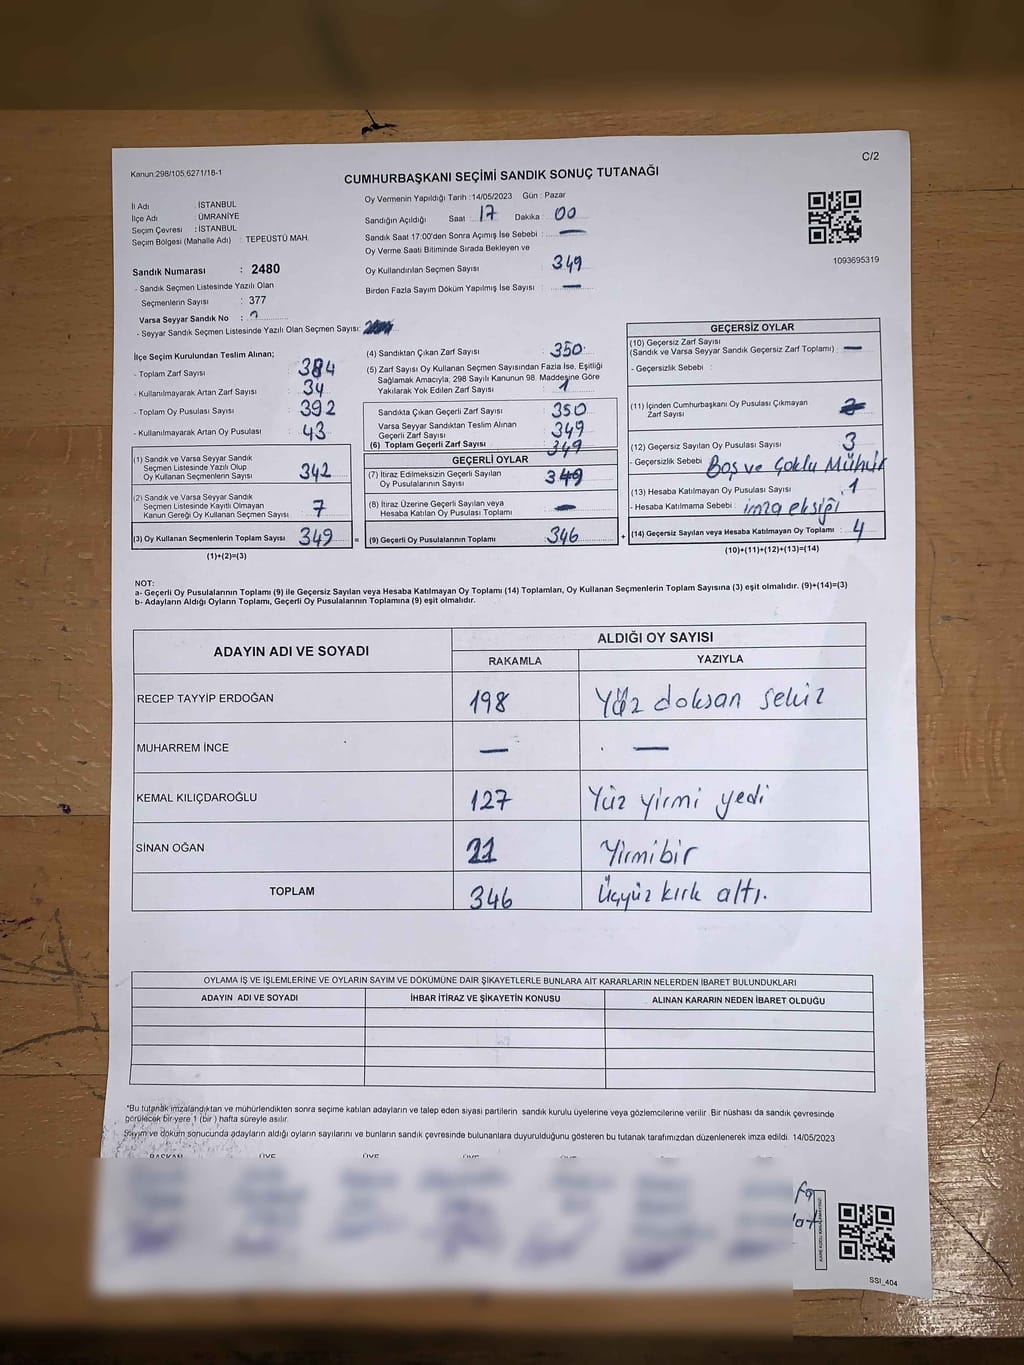 Kanun:298/105,6271/18-1
C/2
CUMHURBAŞKANI SEÇİMİ SANDIK SONUÇ TUTANAĞI
İl Adı : İSTANBUL
İlçe Adı : ÜMRANİYE
Seçim Çevresi : İSTANBUL
Seçim Bölgesi (Mahalle Adı) : TEPEÜSTÜ MAH.
Sandık Numarası : 2480
- Sandık Seçmen Listesinde Yazılı Olan
Seçmenlerin Sayısı : 377
Varsa Seyyar Sandık No :
- Seyyar Sandık Seçmen Listesinde Yazılı Olan Seçmen Sayısı:
Oy Vermenin Yapıldığı Tarih :14/05/2023 Gün : Pazar
Sandığın Açıldığı Saat : 17 Dakika : 00
Sandık Saat 17:00'den Sonra Açımış İse Sebebi : —
Oy Verme Saati Bitiminde Sırada Bekleyen ve
Oy Kullandırılan Seçmen Sayısı : 349
Birden Fazla Sayım Döküm Yapılmış İse Sayısı : —
1093695319
İlçe Seçim Kurulundan Teslim Alınan;
- Toplam Zarf Sayısı : 384
- Kullanılmayarak Artan Zarf Sayısı : 34
- Toplam Oy Pusulası Sayısı : 392
- Kullanılmayarak Artan Oy Pusulası : 43
(1) Sandık ve Varsa Seyyar Sandık
Seçmen Listesinde Yazılı Olup
Oy Kullanan Seçmenlerin Sayısı : 342
(2) Sandık ve Varsa Seyyar Sandık
Seçmen Listesinde Kayıtlı Olmayan
Kanun Gereği Oy Kullanan Seçmen Sayısı : 7
(3) Oy Kullanan Seçmenlerin Toplam Sayısı : 349 =
(1)+(2)=(3)
(4) Sandıktan Çıkan Zarf Sayısı : 350
(5) Zarf Sayısı Oy Kullanan Seçmen Sayısından Fazla İse, Eşitliği
Sağlamak Amacıyla, 298 Sayılı Kanunun 98. Maddesine Göre
Yakılarak Yok Edilen Zarf Sayısı : 1
Sandıkta Çıkan Geçerli Zarf Sayısı : 350
Varsa Seyyar Sandıktan Teslim Alınan
Geçerli Zarf Sayısı : 349
(6) Toplam Geçerli Zarf Sayısı : 349
GEÇERLİ OYLAR
(7) İtiraz Edilmeksizin Geçerli Sayılan
Oy Pusulalarının Sayısı : 349
(8) İtiraz Üzerine Geçerli Sayılan veya
Hesaba Katılan Oy Pusulası Toplamı : —
(9) Geçerli Oy Pusulalarının Toplamı : 346 +
GEÇERSİZ OYLAR
(10) Geçersiz Zarf Sayısı
(Sandık ve Varsa Seyyar Sandık Geçersiz Zarf Toplamı) : —
- Geçersizlik Sebebi :
(11) İçinden Cumhurbaşkanı Oy Pusulası Çıkmayan
Zarf Sayısı :
(12) Geçersiz Sayılan Oy Pusulası Sayısı : 3
- Geçersizlik Sebebi : Boş ve Çoklu Mühür
(13) Hesaba Katılmayan Oy Pusulası Sayısı : 1
- Hesaba Katılmama Sebebi : imza eksiği
(14) Geçersiz Sayılan veya Hesaba Katılmayan Oy Toplamı : 4
(10)+(11)+(12)+(13)=(14)
NOT:
a- Geçerli Oy Pusulalarının Toplamı (9) ile Geçersiz Sayılan veya Hesaba Katılmayan Oy Toplamı (14) Toplamları, Oy Kullanan Seçmenlerin Toplam Sayısına (3) eşit olmalıdır. (9)+(14)=(3)
b- Adayların Aldığı Oyların Toplamı, Geçerli Oy Pusulalarının Toplamına (9) eşit olmalıdır.
ADAYIN ADI VE SOYADI
ALDIĞI OY SAYISI
RAKAMLA YAZIYLA
RECEP TAYYİP ERDOĞAN 198 Yüz doksan sekiz
MUHARREM İNCE — —
KEMAL KILIÇDAROĞLU 127 Yüz yirmi yedi
SİNAN OĞAN 21 Yirmibir
TOPLAM 346 Üçyüz kırk altı.
OYLAMA İŞ VE İŞLEMLERİNE VE OYLARIN SAYIM VE DÖKÜMÜNE DAİR ŞİKAYETLERLE BUNLARA AİT KARARLARIN NELERDEN İBARET BULUNDUKLARI
ADAYIN ADI VE SOYADI İHBAR İTİRAZ VE ŞİKAYETİN KONUSU ALINAN KARARIN NEDEN İBARET OLDUĞU
*Bu tutanak imzalandıktan ve mühürlendikten sonra seçime katılan adayların ve talep eden siyasi partilerin sandık kurulu üyelerine veya gözlemcilerine verilir. Bir nüshası da sandık çevresinde
görülecek bir yere 1 (bir ) hafta süreyle asılır.
Sayım ve döküm sonucunda adayların aldığı oyların sayılarını ve bunların sandık çevresinde bulunanlara duyurulduğunu gösteren bu tutanak tarafımızdan düzenlenerek imza edildi. 14/05/2023
BAŞKAN ÜYE ÜYE ÜYE ÜYE
SSI_404